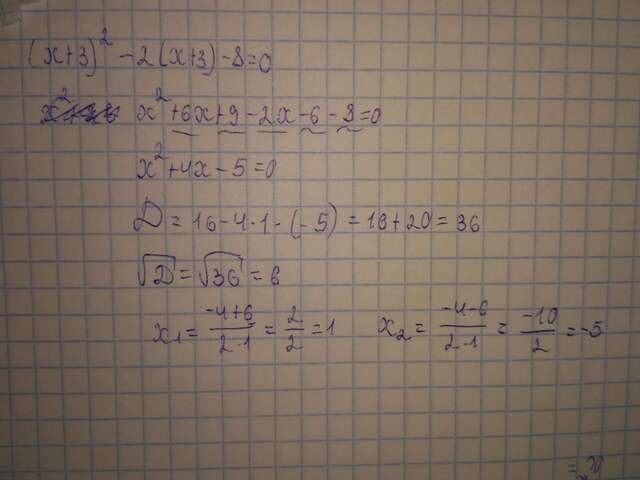 (x+3)² - 2(x+3) - 8 = 0
x² + 6x + 9 - 2x - 6 - 8 = 0
x² + 4x - 5 = 0
D = 16 - 4·1·(-5) = 16 + 20 = 36
√D = √36 = 6
x₁ = (-4+6)/(2·1) = 2/2 = 1 x₂ = (-4-6)/(2·1) = -10/2 = -5